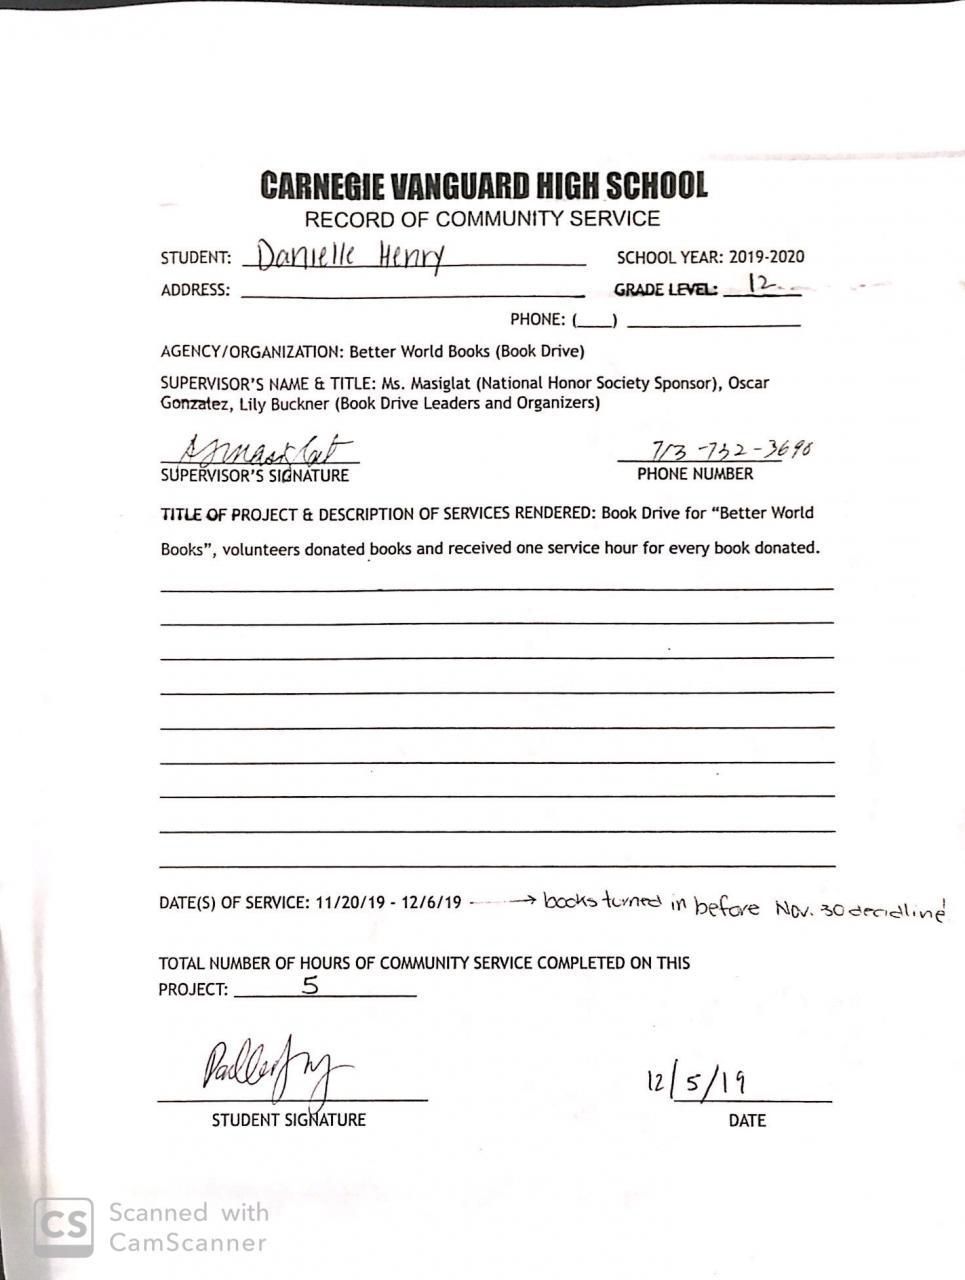 CARNEGIE VANGUARD HIGH SCHOOL
RECORD OF COMMUNITY SERVICE
STUDENT: Danielle Henry SCHOOL YEAR: 2019-2020
ADDRESS: GRADE LEVEL: 12
PHONE: ( )
AGENCY/ORGANIZATION: Better World Books (Book Drive)
SUPERVISOR'S NAME & TITLE: Ms. Masiglat (National Honor Society Sponsor), Oscar
Gonzalez, Lily Buckner (Book Drive Leaders and Organizers)
713-732-3690
SUPERVISOR'S SIGNATURE PHONE NUMBER
TITLE OF PROJECT & DESCRIPTION OF SERVICES RENDERED: Book Drive for "Better World
Books", volunteers donated books and received one service hour for every book donated.
DATE(S) OF SERVICE: 11/20/19 - 12/6/19 → books turned in before Nov. 30 deadline!
TOTAL NUMBER OF HOURS OF COMMUNITY SERVICE COMPLETED ON THIS
PROJECT: 5
12/5/19
STUDENT SIGNATURE DATE
CS Scanned with
CamScanner